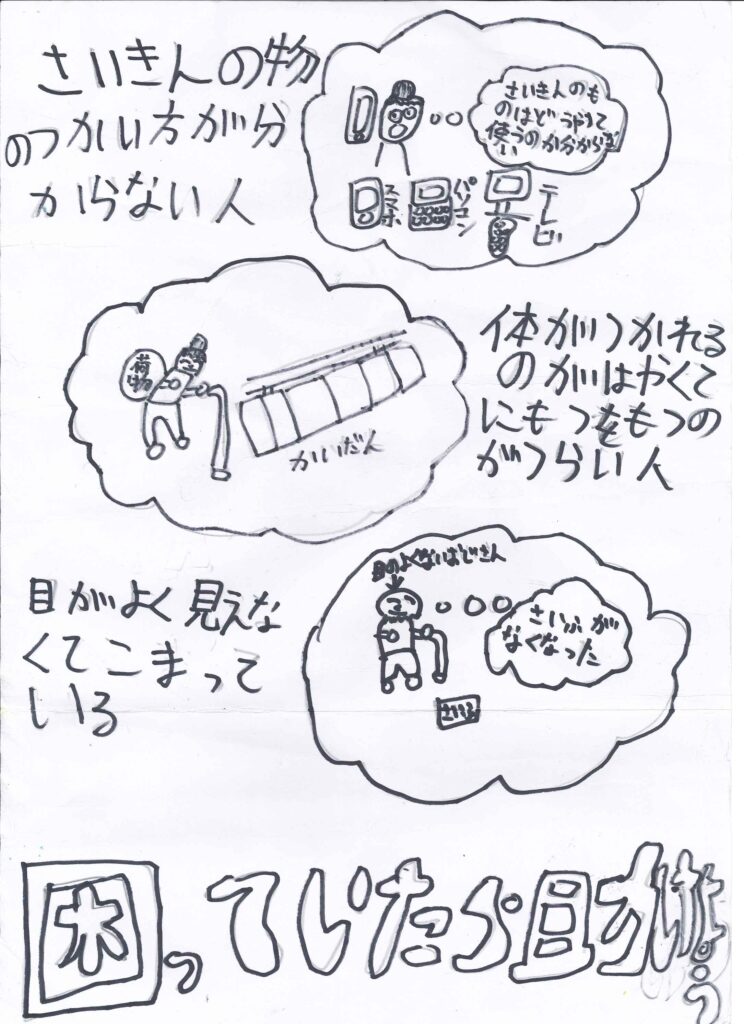 さいきんの物
のつかい方が分
からない人
さいきんのも
のはどうやって
使うのか分からな
い
スマホ
パソコン
テレビ
荷物
かいだん
体がつかれる
のがはやくて
にもつをもつの
がつらい人
目がよく見えな
くてこまって
いる
目のよくないおじさん
さいふが
なくなった
さいふ
困っていたら助けよう